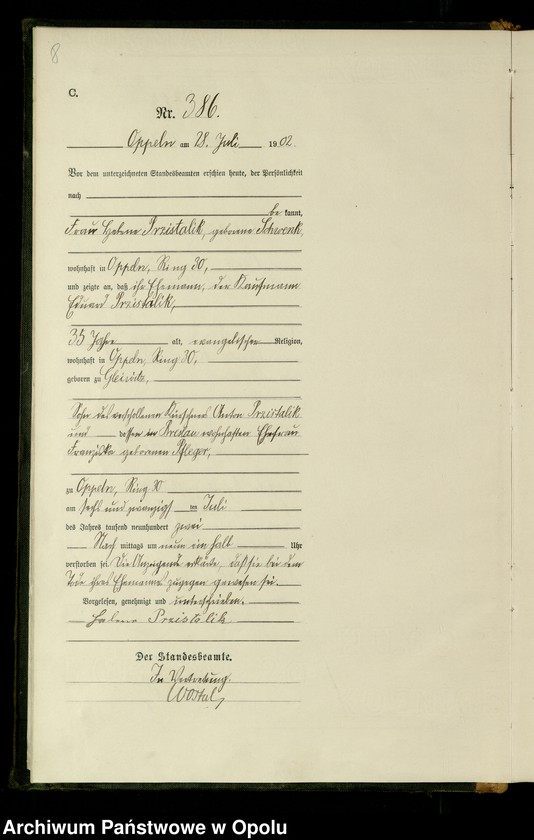 8
C.
Nr. 386.
Oppeln am 28. Juli 1902.
Vor dem unterzeichneten Standesbeamten erschien heute, der Persönlichkeit
nach
be kannt,
Frau Helene Przistalik, geborene Schwenk,
wohnhaft in Oppeln, Ring 30,
und zeigte an, daß ihr Ehemann, der Kaufmann
Eduard Przistalik,
35 Jahre alt, evangelischer Religion,
wohnhaft in Oppeln, Ring 30,
geboren zu Gleiwitz,
Sohn des verschollenen Kürschners Anton Przistalik
und dessen in Breslau wohnhaften Ehefrau
Franziska geborenen Pfleger,
zu Oppeln, Ring 30
am sechs und zwanzigsten Juli
des Jahres tausend neunhundert zwei
Nach mittags um neun ein halb Uhr
verstorben sei. Die Anzeigende erklärte, daß sie bei dem
Tode ihres Ehemannes zugegen gewesen sei.
Vorgelesen, genehmigt und unterschrieben.
Helene Preistolik
Der Standesbeamte.
In Vertretung.
Wostal
Archiwum Państwowe w Opolu